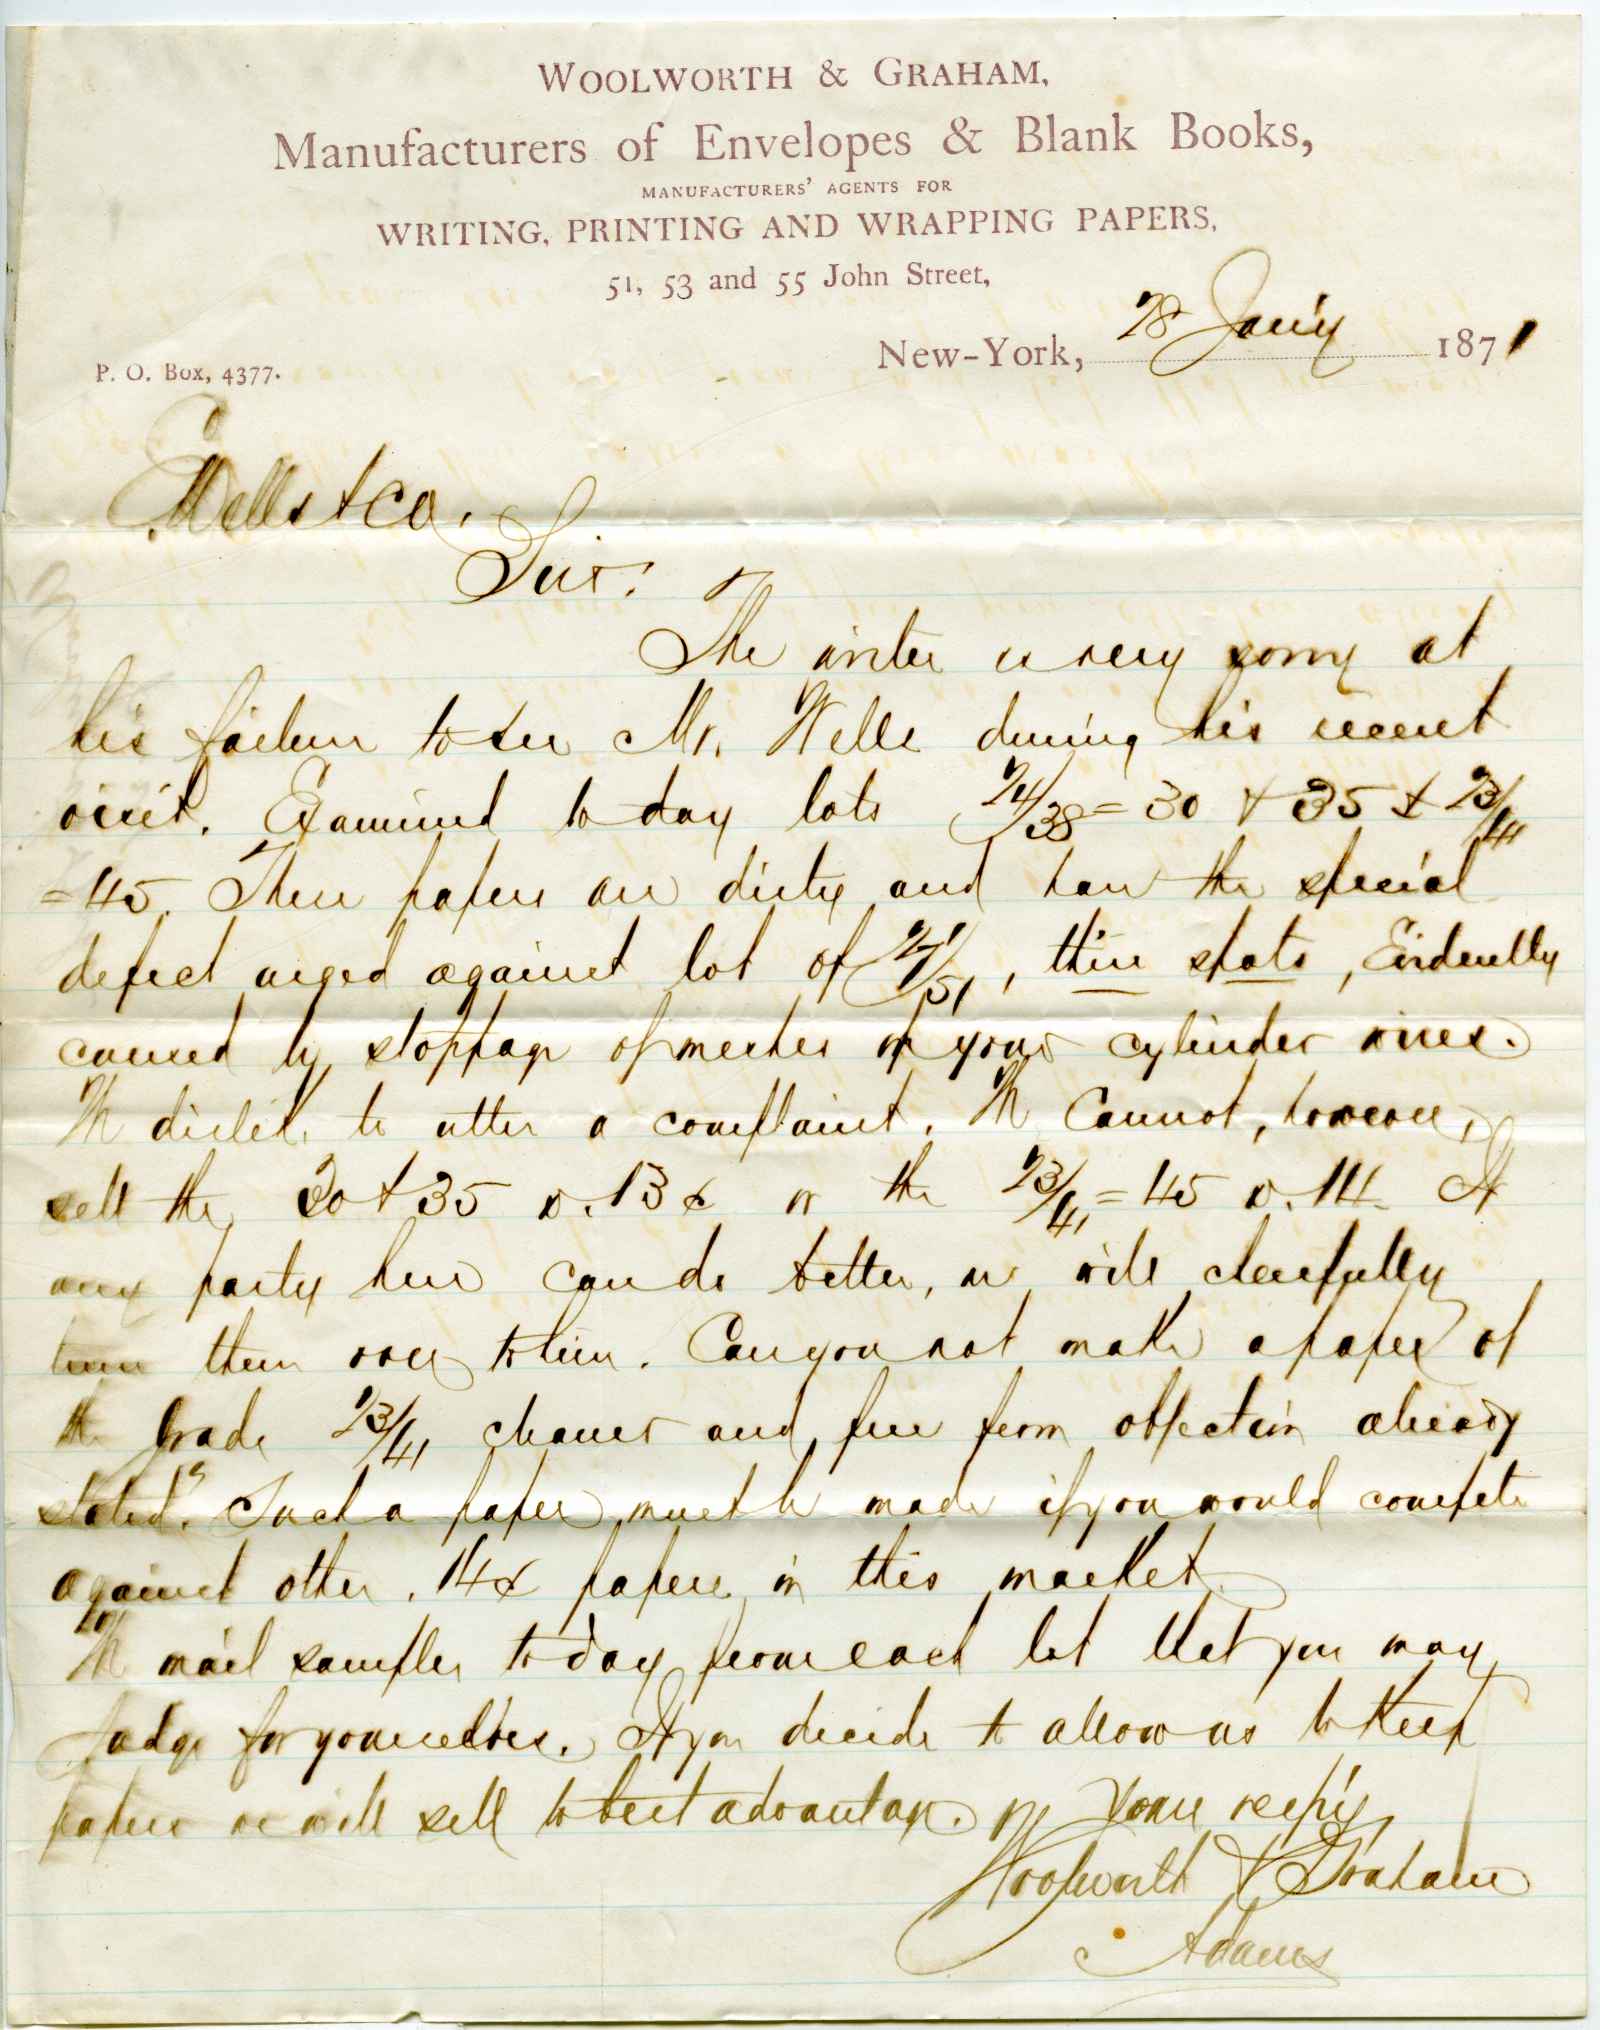 WOOLWORTH & GRAHAM,
Manufacturers of Envelopes & Blank Books,
MANUFACTURERS' AGENTS FOR
WRITING, PRINTING AND WRAPPING PAPERS,
51, 53 and 55 John Street,
New-York, 28 Jan'y 1871
P. O. Box, 4377.
E Wells & Co.
Sirs:
The writer is very sorry at
his failure to see Mr. Wells during his recent
visit. Examined to day lots 24/38 = 30 & 35 & 23/41
= 45. These papers are dirty and have the special
defect urged against lot of /51, thin spots, Evidently
caused by stoppage of meshes of your cylinder wires.
We dislike to utter a complaint. We Cannot, however,
sell the 30 & 35 @ .13¢ or the 23/41 = 45 @ .14. If
any party here can do better, we will cheerfully
turn them over to him. Can you not make a paper of
the grade 23/41 cleaner and free from objection already
stated? Such a paper must be made if you would compete
against other .14¢ papers in this market.
We mail samples to day from each lot that you may
judge for yourselves. If you decide to allow us to keep
papers we will sell to best advantage. Yours resp'y,
Woolworth & Graham
Adams